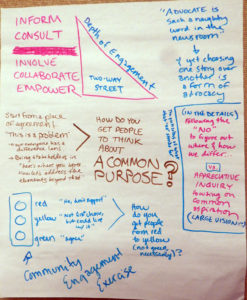 INFORM
CONSULT
INVOLVE
COLLABORATE
EMPOWER
Depth of Engagement
TWO-WAY
STREET
"ADVOCATE is
such a naughty
word in the
newsroom"
yet choosing
one story over
another is
a form of
advocacy
Start from a place
of agreement
This is a problem
everyone has a
different lens
Bring stakeholders in
here's where you were
now let's address the
elements beyond that
HOW DO YOU
GET PEOPLE
TO THINK
ABOUT
A COMMON
PURPOSE?
(IN THE DETAILS)
following the
"NO"
to figure out
where & how
we differ.
VS.
APPRECIATIVE
INQUIRY
touching on
common
aspiration
(LARGE VISION)
red "No, don't support"
yellow "not first choice,
but could live
w/ it"
green "agree"
How
do you
get
people
from red
to yellow
(not green
necessarily)?
Community
Engagement
Exercise